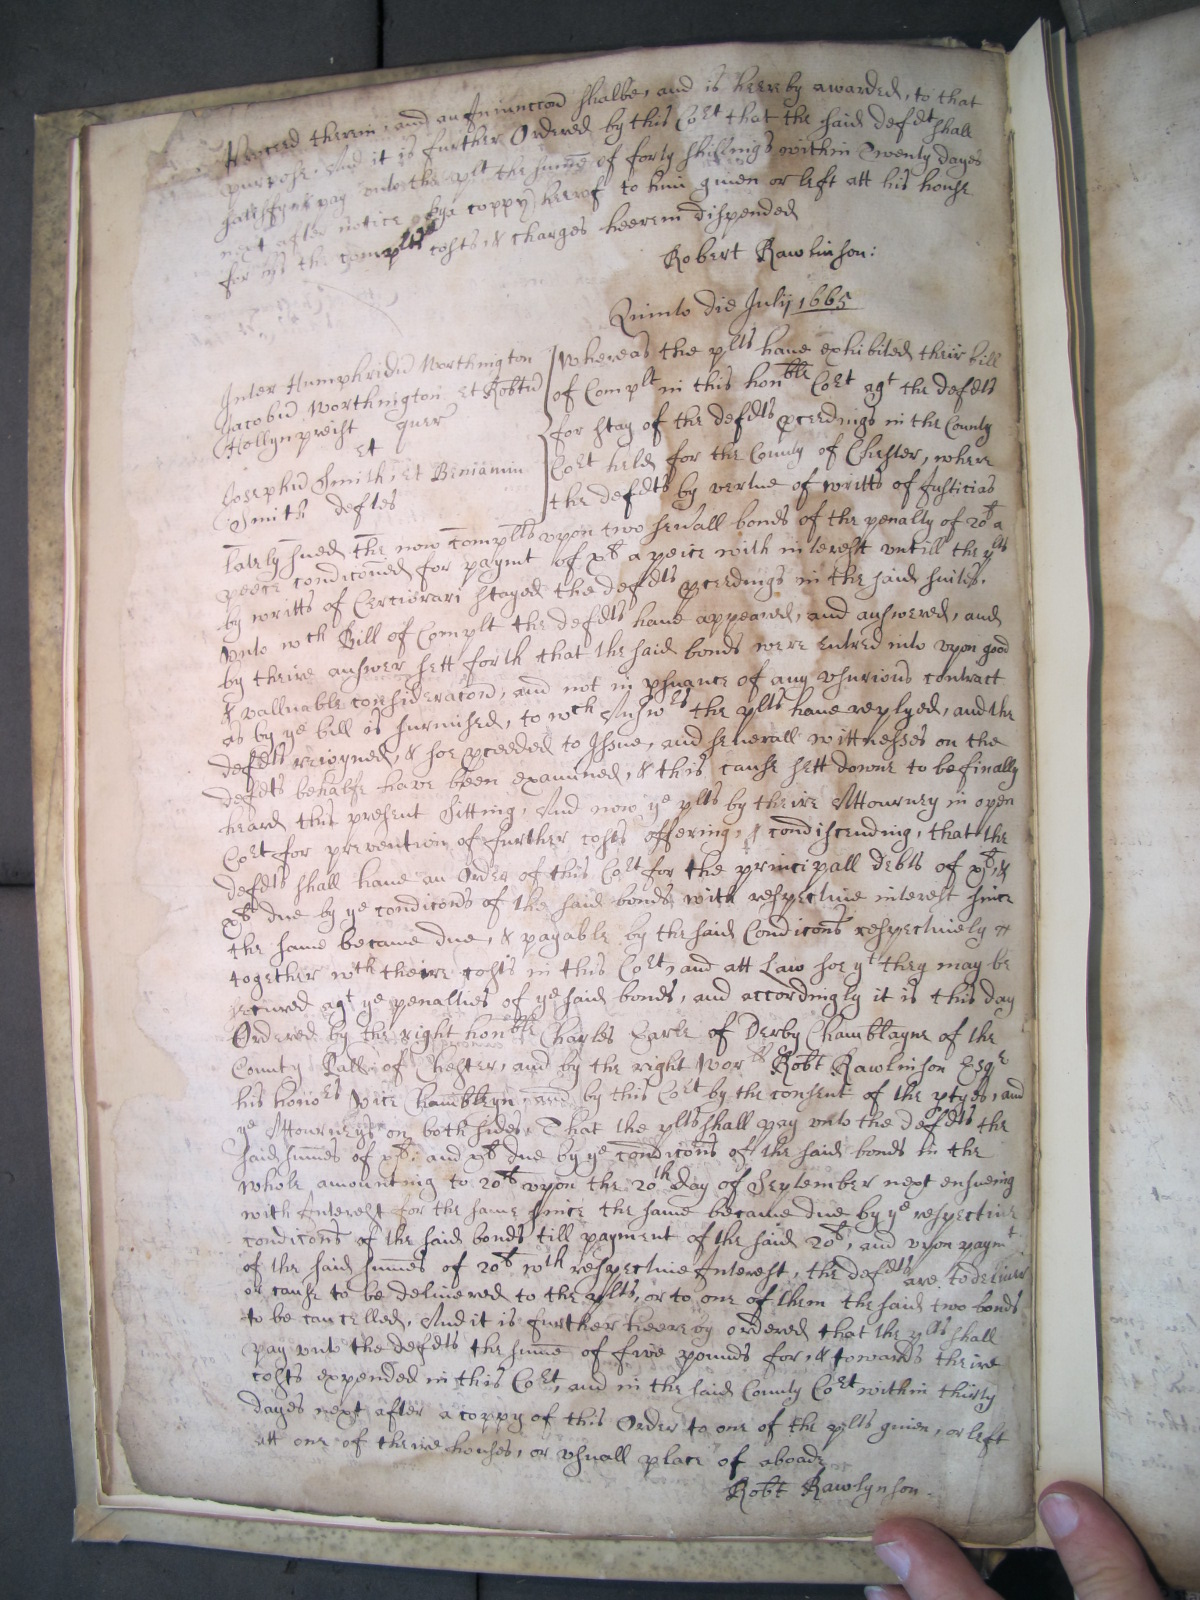 therein, and an Iniunccon shalbe, and is heereby awarded, to that
purpose. And it is further Ordered by this Cort that the said defdt shall
satisfy & pay vnto the plt the summe of forty shillings within Twenty dayes
next after notice by a coppy hereof to him giuen or left att his house
for the complts costs & charges heerein dispended
Robert Rawlinson:
Quinto die July 1665
Inter Humphridu Worthington
Jacobu Worthington et Robtu
Hollynpreist quer
Et
Josephu Smith, et Beniamin
Smith deftes
Whereas the plts haue exhibited their bill
of Complt in this honble Cort agt the defdts
for stay of the defdts pceedings in the County
Cort held for the County of Chester, where
the defdts by vertue of writts of Justicias
lately sued the now complts vpon two seuall bonds of the penalty of 20li a
peece condiconed for paymt of xli a peice with interest vntill the plts
by writts of Cerciorari stayed the defdts pceedings in the said suites.
Vnto wch Bill of Complt the defdts haue appeared, and answered, and
by theire answer sett forth that the said bonds were entred into vpon good
& valluable consideracon, and not in psuance of any vsurious contract
as by ye bill is surmised, to wch Answrs the plts haue replyed, and the
defdts reioyned, & soe pceeded to Issue, and seuerall wittnesses on the
defdts behalfe have been examined, & this cause sett downe to be finally
heard this present Sitting, And now ye plts by theire Attourney in open
Cort for prevention of further costs offering, & condiscending, that the
defdts shall haue an Order of this Cort for the principall debts of xli, &
xli due by ye condicons of the said bonds with respectiue interest since
the same became due, & payable by the said Condicons respectiuely &
together wth theire costs in this Cort, and att Law soe yt they may be
secured agt ye penalties of ye said bonds, and accordingly it is this day
Ordered by the right honble Charles Earle of Derby Chamblayne of the
County Pallt of Chester, and by the right Worll Robt Rawlinson Esqr
his honors Vice Chambleyn and by this Cort by the consent of the ptyes, and
ye Attourneys on both sides, That the plts shall pay vnto the defdts the
said summes of xli: and xli due by ye condicons of the said bonds in the
whole amounting to 20li vpon the 20th day of September next ensueing
with Interest for the same since the same became due by ye respectiue
condicons of the said bonds till payment of the said 20li, and vpon paymt
of the said summes of 20li wth respectiue Interest, the defdts are to deliuer
or cause to be deliuered to the plts, or to one of them the said two bonds
to be cancelled, And it is further heereby ordered that the plts shall
pay vnto the defdts the summe of fiue pounds for, & towards theire
costs expended in this Cort, and in the said County Cort within thirty
dayes next after a coppy of this Order to one of the plts giuen, or left
att one of theire houses, or vsuall place of aboade
Robt Rawlynson